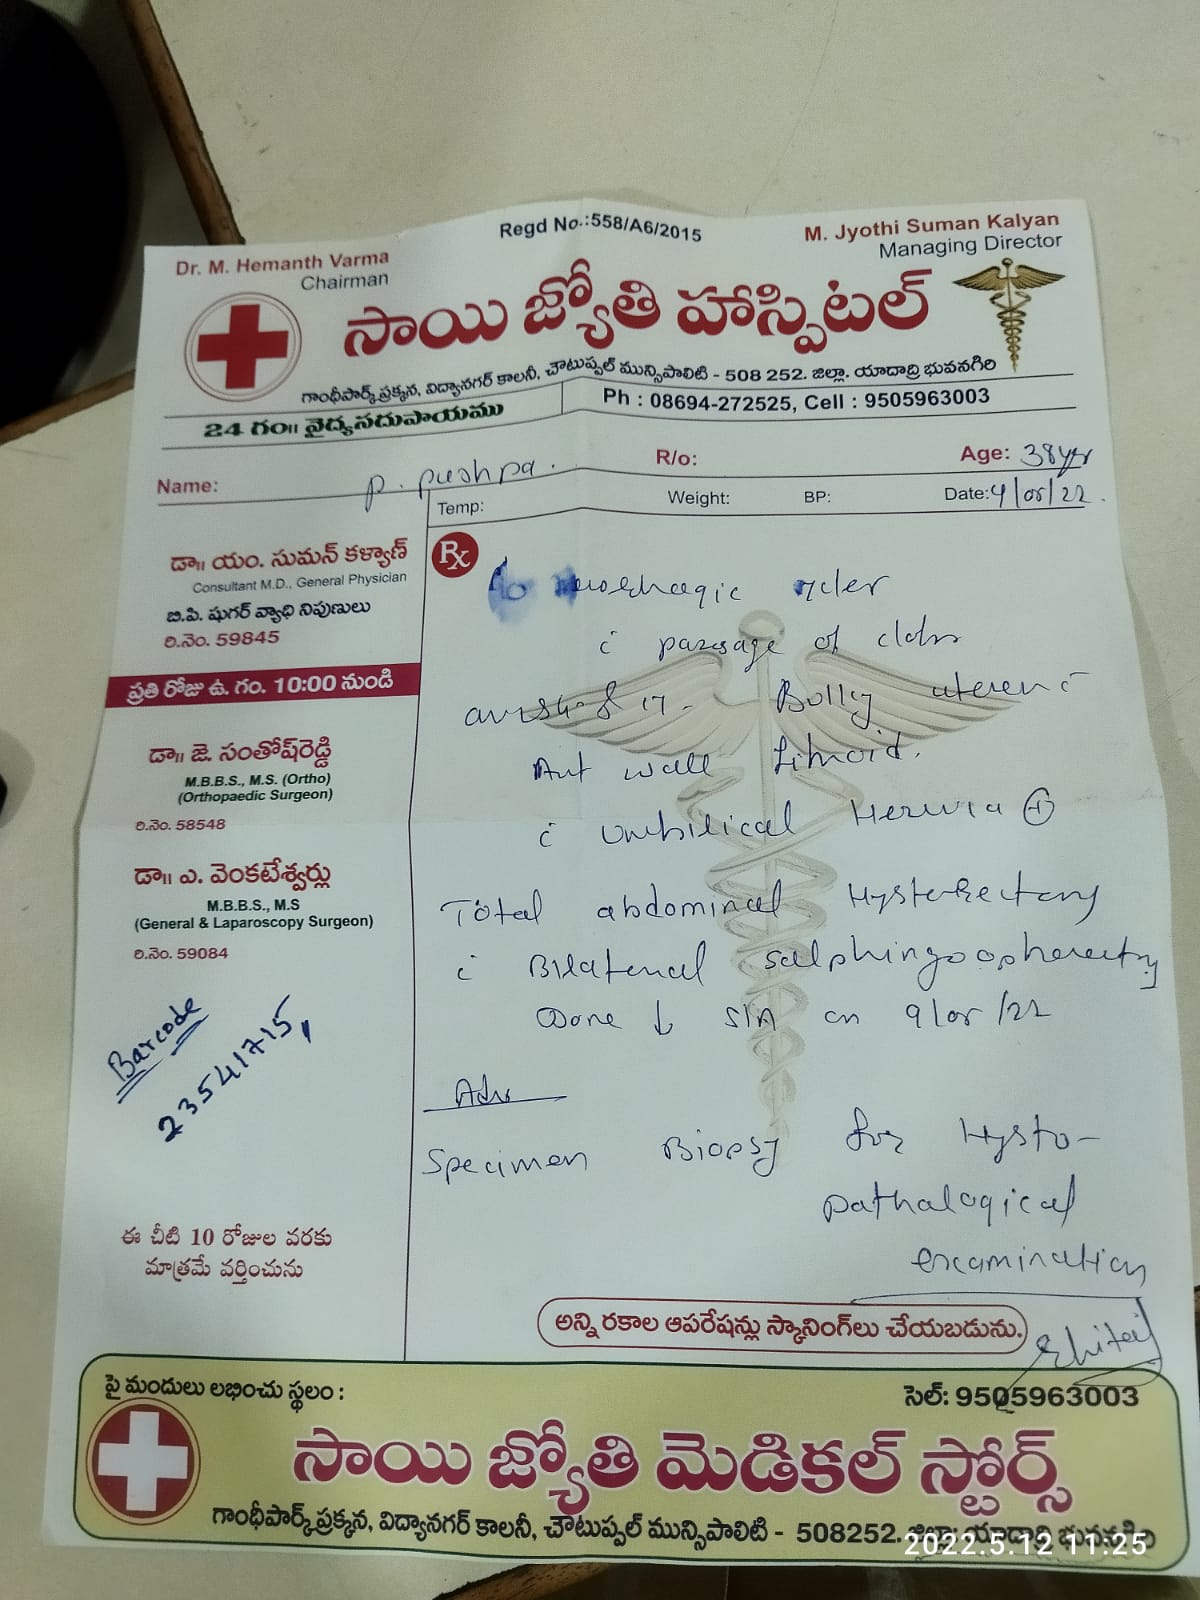 Regd No.:558/A6/2015
Dr. M. Hemanth Varma
Chairman
M. Jyothi Suman Kalyan
Managing Director
సాయి జ్యోతి హాస్పిటల్
గాంధీపార్క్ ప్రక్కన, విద్యానగర్ కాలనీ, చౌటుప్పల్ మున్సిపాలిటి - 508 252. జిల్లా. యాదాద్రి భువనగిరి
24 గం॥ వైద్యసదుపాయము
Ph : 08694-272525, Cell : 9505963003
Name: P. pushpa. R/o: Age: 38yr
Temp: Weight: BP: Date: 9/05/22.
డా॥ యం. సుమన్ కళ్యాణ్
Consultant M.D., General Physician
బి.పి. షుగర్ వ్యాధి నిపుణులు
రి.నెం. 59845
ప్రతి రోజు ఉ. గం. 10:00 నుండి
డా॥ జె. సంతోష్‌రెడ్డి
M.B.B.S., M.S. (Ortho)
(Orthopaedic Surgeon)
రి.నెం. 58548
డా॥ ఎ. వెంకటేశ్వర్లు
M.B.B.S., M.S
(General & Laparoscopy Surgeon)
రి.నెం. 59084
Barcode
23541715
ఈ చీటి 10 రోజుల వరకు
మాత్రమే వర్తించును
Rx
c passage of clots
Bulky uterus c
Ant wall
c umbilical Hernia +
Total abdominal Hysterectomy
c Bilateral salphingoopherectomy
Done ↓ S/A on 9/05/22
Adv
Specimen Biopsy for Hysto-
pathalogical
examination
అన్ని రకాల ఆపరేషన్లు స్కానింగ్‌లు చేయబడును.
పై మందులు లభించు స్థలం :
సెల్: 9505963003
సాయి జ్యోతి మెడికల్ స్టోర్స్
గాంధీపార్క్ ప్రక్కన, విద్యానగర్ కాలనీ, చౌటుప్పల్ మున్సిపాలిటి - 508252. జిల్లా. యాదాద్రి భువనగిరి
2022.5.12 11:25